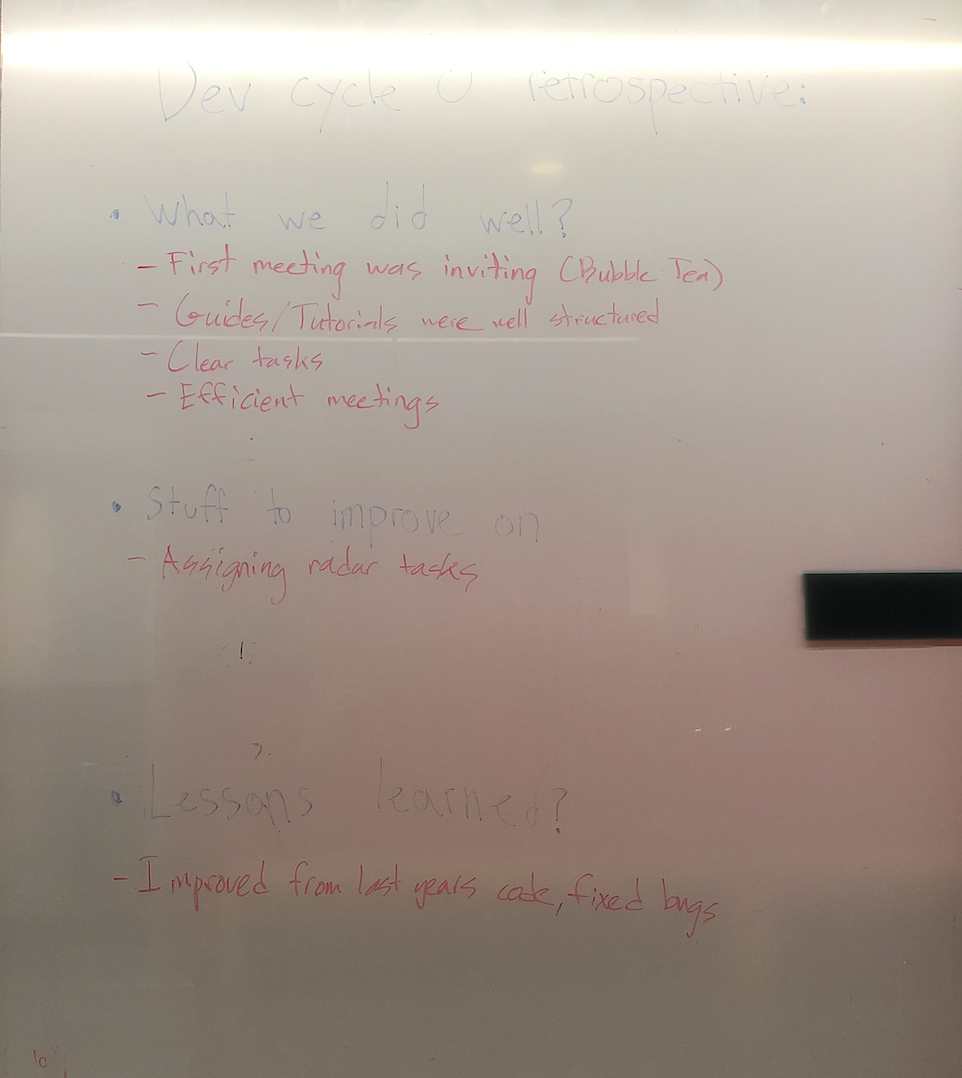 Dev cycle 0 retrospective:
• What we did well?
- First meeting was inviting (Bubble Tea)
- Guides/Tutorials were well structured
- Clear tasks
- Efficient meetings
• Stuff to improve on
- Assigning radar tasks
• Lessons learned?
- Improved from last years code, fixed bugs